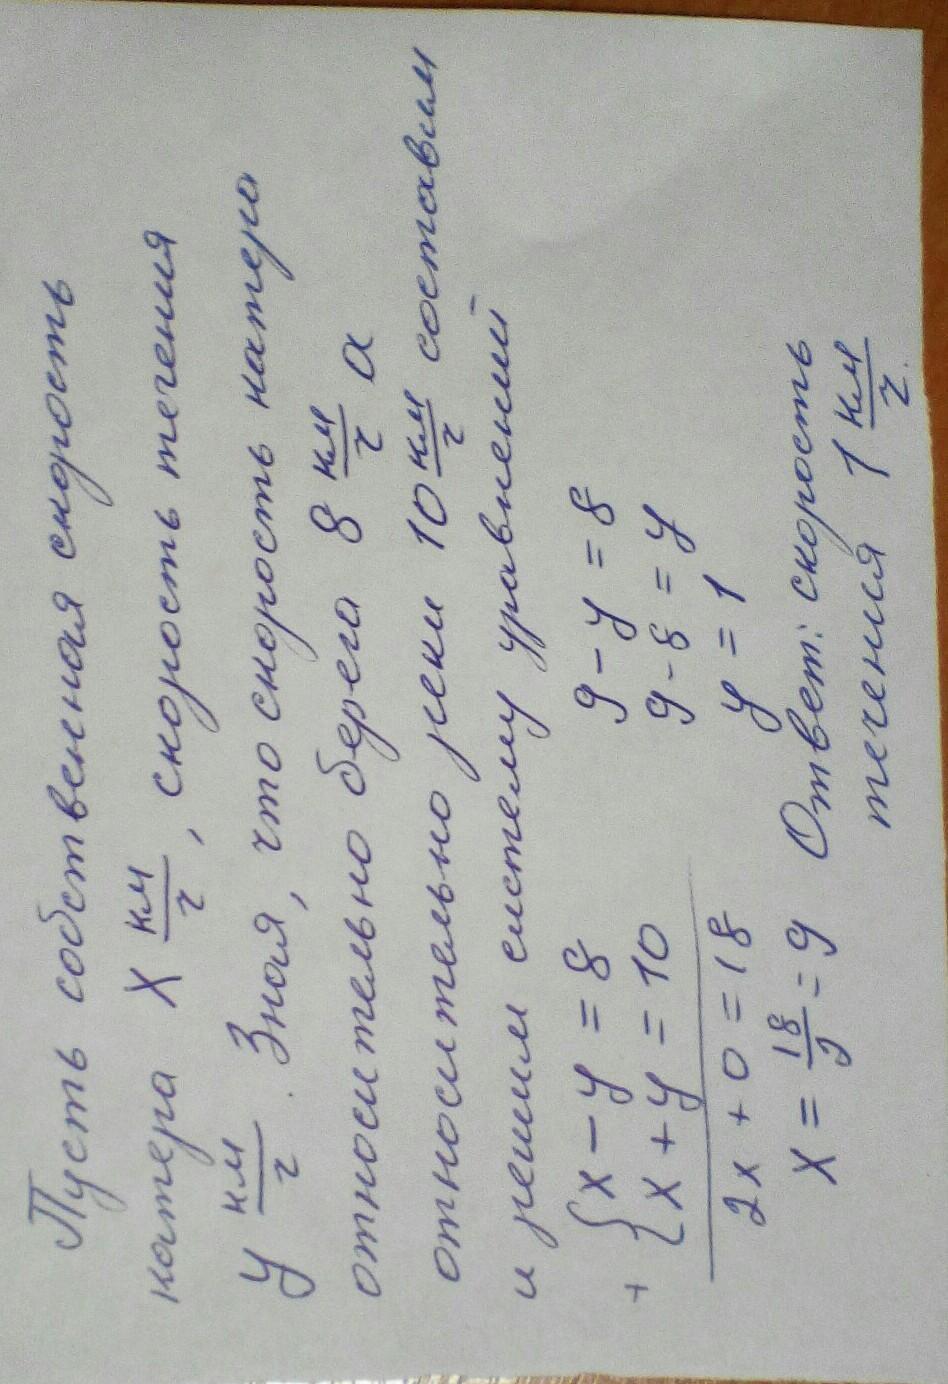 Пусть собственная скорость
катера x км/ч, скорость течения
y км/ч. Зная, что скорость катера
относительно берега 8 км/ч а
относительно реки 10 км/ч составим
и решим систему уравнений
+ { x - y = 8
x + y = 10
2x + 0 = 18
x = 18/2 = 9
9 - y = 8
9 - 8 = y
y = 1
Ответ: скорость
течения 1 км/ч.